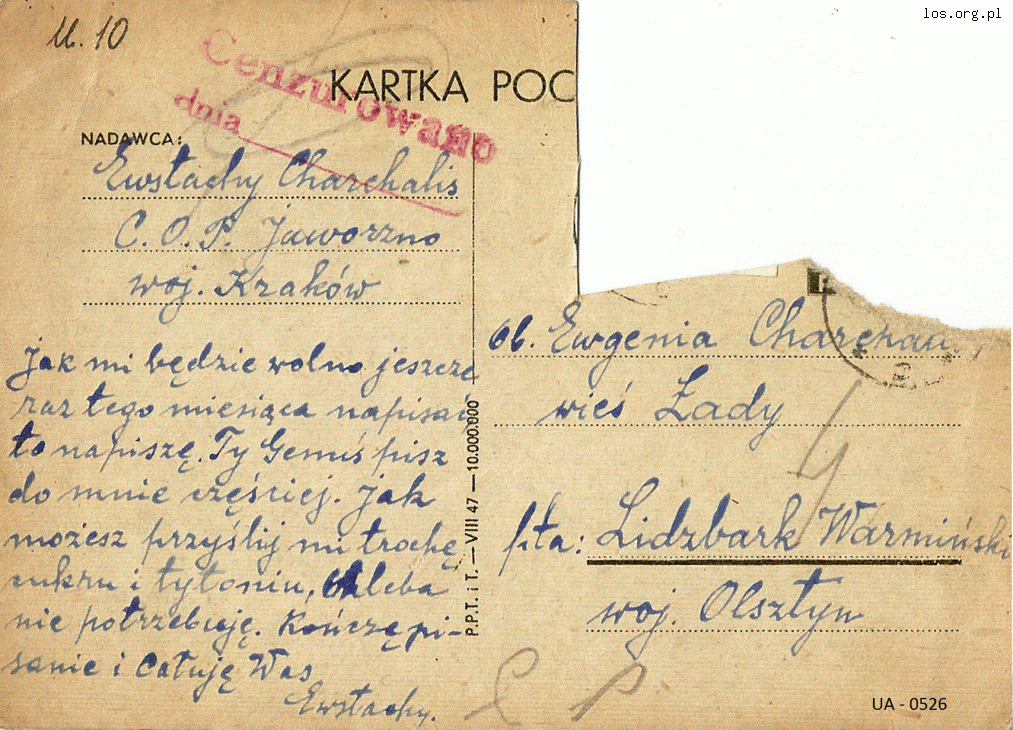 los.org.pl
U. 10
Cenzurowano
dnia
KARTKA POC
NADAWCA:
Ewstachy Charchalis
C. O. P. Jaworzno
woj. Kraków
Jak mi będzie wolno jeszcze
raz tego miesiąca napisać
to napiszę. Ty Genuś pisz
do mnie częściej. Jak
możesz przyślij mi trochę
cukru i tytoniu, chleba
nie potrzebuję. Kończę pi-
sanie i Całuję Was
Ewstachy.
P.P.T. i T. — VIII 47 — 10.000.000
Ob. Ewgenia
wieś Łady
pta: Lidzbark Warmiński
woj. Olsztyn
UA - 0526